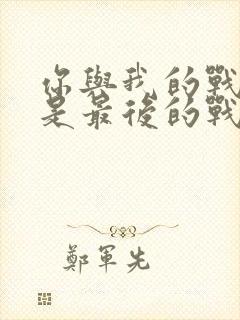 你與我的戰
是最後的戰
鄭軍先